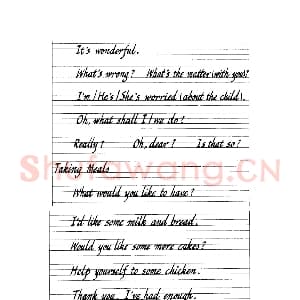 It's wonderful.
What's wrong? What's the matter (with you)?
I'm/He's/She's worried (about the child).
Oh, what shall I/we do?
Really? Oh, dear? Is that so?
Shufawang.CN
Taking Meals
What would you like to have?
I'd like some milk and bread.
Would you like some more cakes?
Help yourself to some chicken.
Thank you. I've had enough.